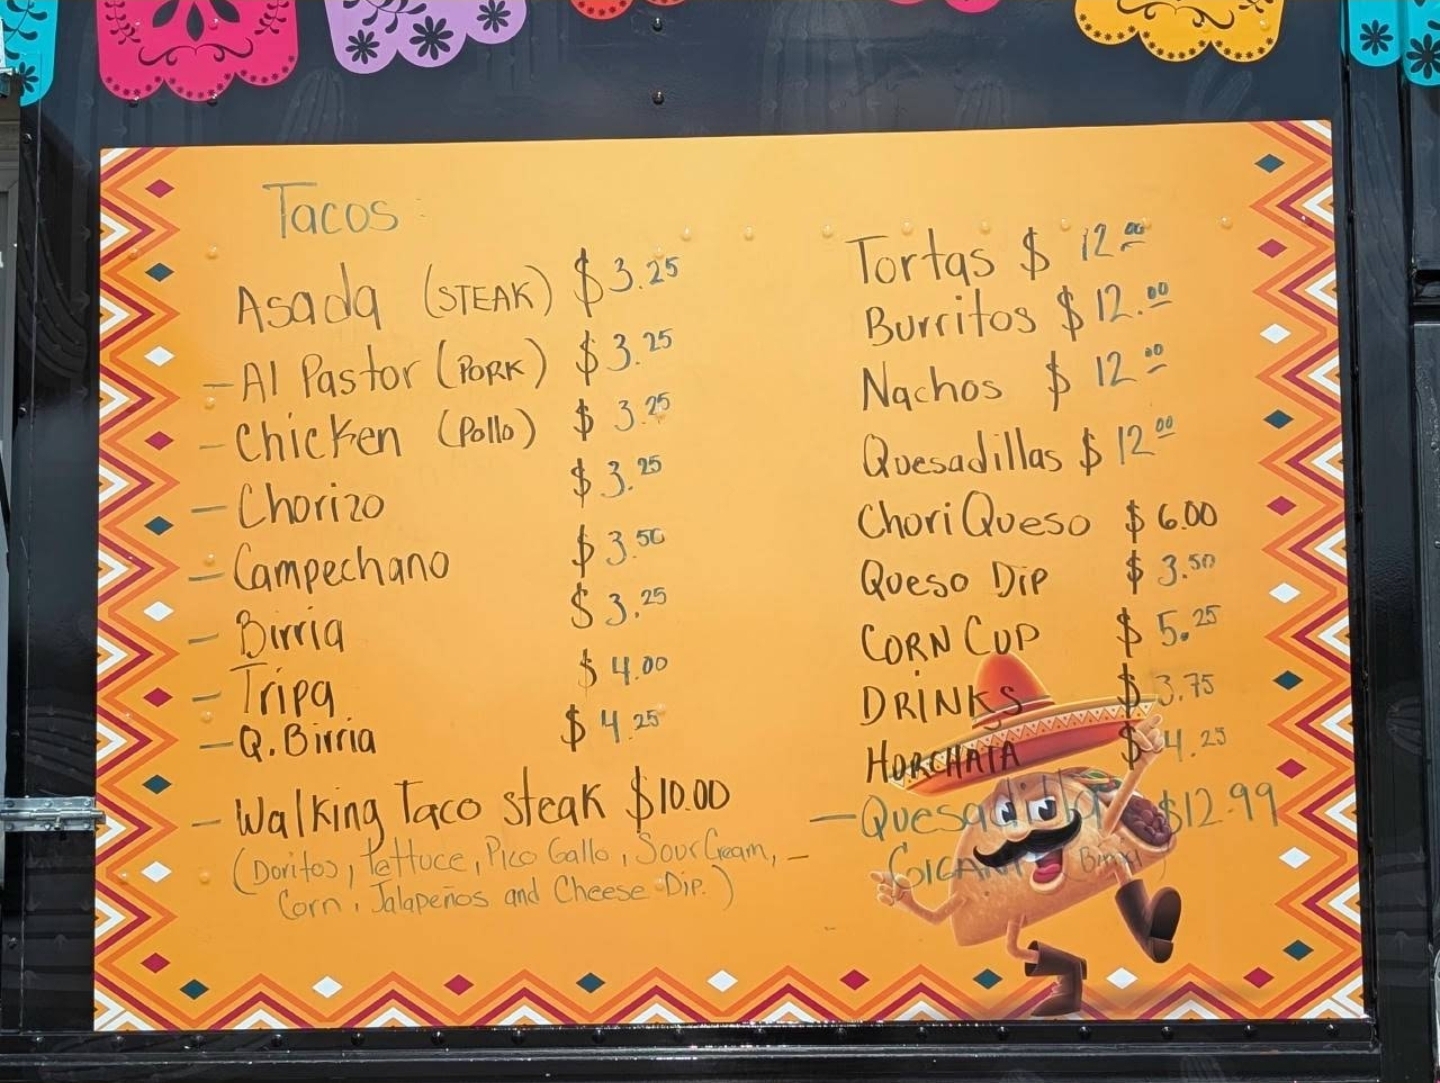 Tacos:
Asada (STEAK) $3.25
- Al Pastor (PORK) $3.25
- Chicken (Pollo) $3.25
- Chorizo $3.25
- Campechano $3.50
- Birria $3.25
- Tripa $4.00
- Q. Birria $4.25
- Walking Taco steak $10.00
(Doritos, Lettuce, Pico Gallo, Sour Cream, -
Corn, Jalapeños and Cheese Dip.)
Tortas $12.00
Burritos $12.00
Nachos $12.00
Quesadillas $12.00
Chori Queso $6.00
Queso Dip $3.50
CORN CUP $5.25
DRINKS $3.75
HORCHATA $4.25
- $12.99